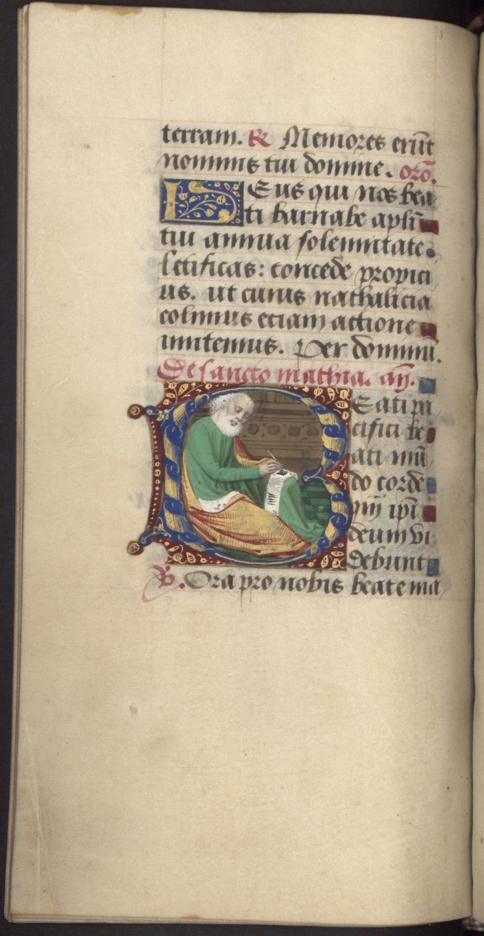 terram. R Memores erūt
nominis tui domine. orō.
DEus qui nos bea
ti barnabe apl̄i
tui annua solennitate
letificas: concede propici
us. ut cuius nathalicia
colimus eciam actiones
imitemur. Per dominū.
De sancto mathia. añ.
BEati pa
cifici be
ati mū
do corde
qm̄ ip̄i
deum vi
debunt
V. Ora pro nobis beate ma